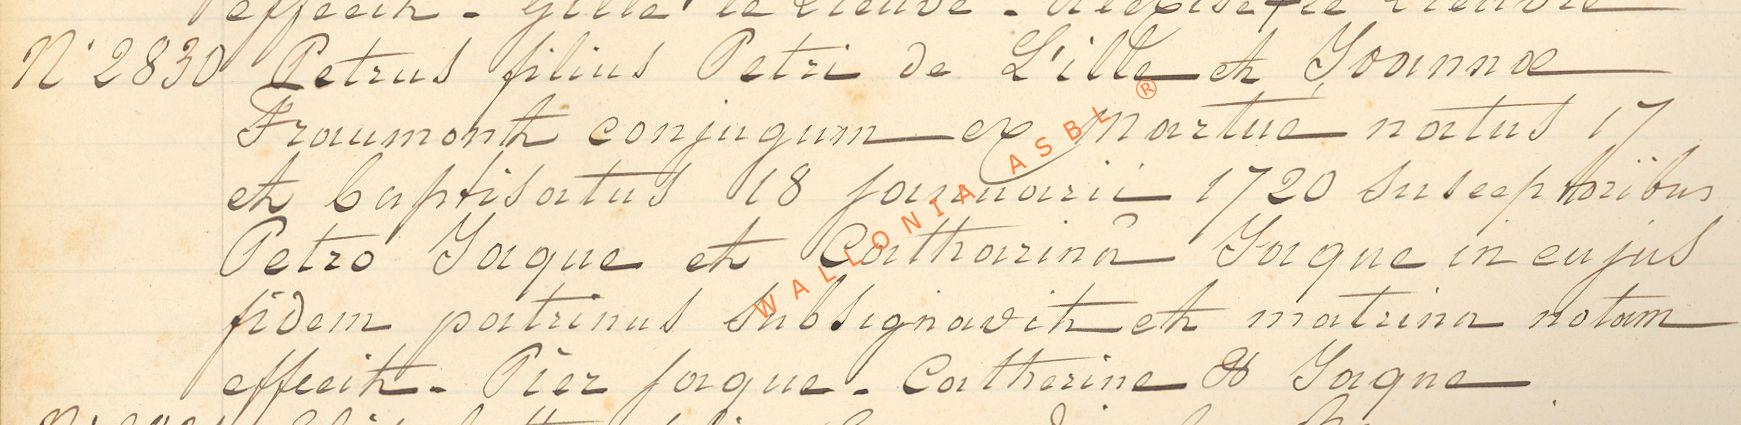 effecit - Gille le Lieuvre -
N° 2830 Petrus filius Petri de L'ille et Joannæ
Fraumont conjugum ex Martue natus 17
et baptisatus 18 januarii 1720 susceptoribus
Petro Jaque et Catharinâ Jaque in cujus
fidem patrinus subsignavit et matrina notam
effecit - Pier jaque - Catherine Jaque
WALLONIA ASBL ®